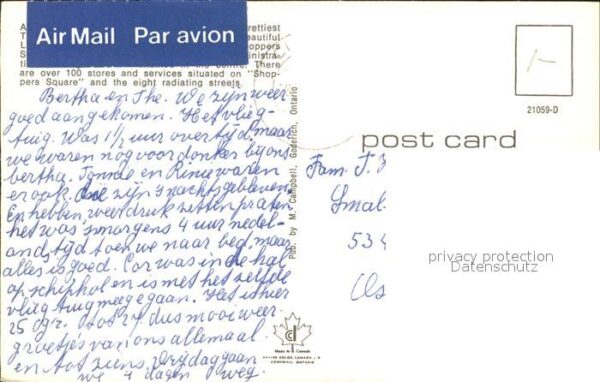 Air Mail Par avion
A
rettiest
T
eautiful
L
hoppers
S
ministra-
ti
in the centre. There
are over 100 stores and services situated on "Shop-
pers Square" and the eight radiating streets.
Bertha en The. We zijn weer
goed aangekomen. Het vlieg-
tuig. Was 1½ uur over tijd maar
we waren nog voor donker bij ons
bertha. Tonnie en Rinie waren
er ook. die zijn s'nachts gebleven
En hebben weer druk zitten praten
het was smorgens 4 uur nedel-
and, tijd toen we naar bed, maar
alles is goed. Cor was in de hal
op schiphol en is met het zelfde
vliegtuig mee gegaan. Het is hier
25 gr. tot dus mooi weer.
groetjes van ons allemaal
en tot ziens. Vrijdag gaan
we 4 dagen weg.
Pub. by M. Campbell, Goderich, Ontario
21059-D
post card
Fam. T.
Smal
534
Os
privacy protection
Datenschutz